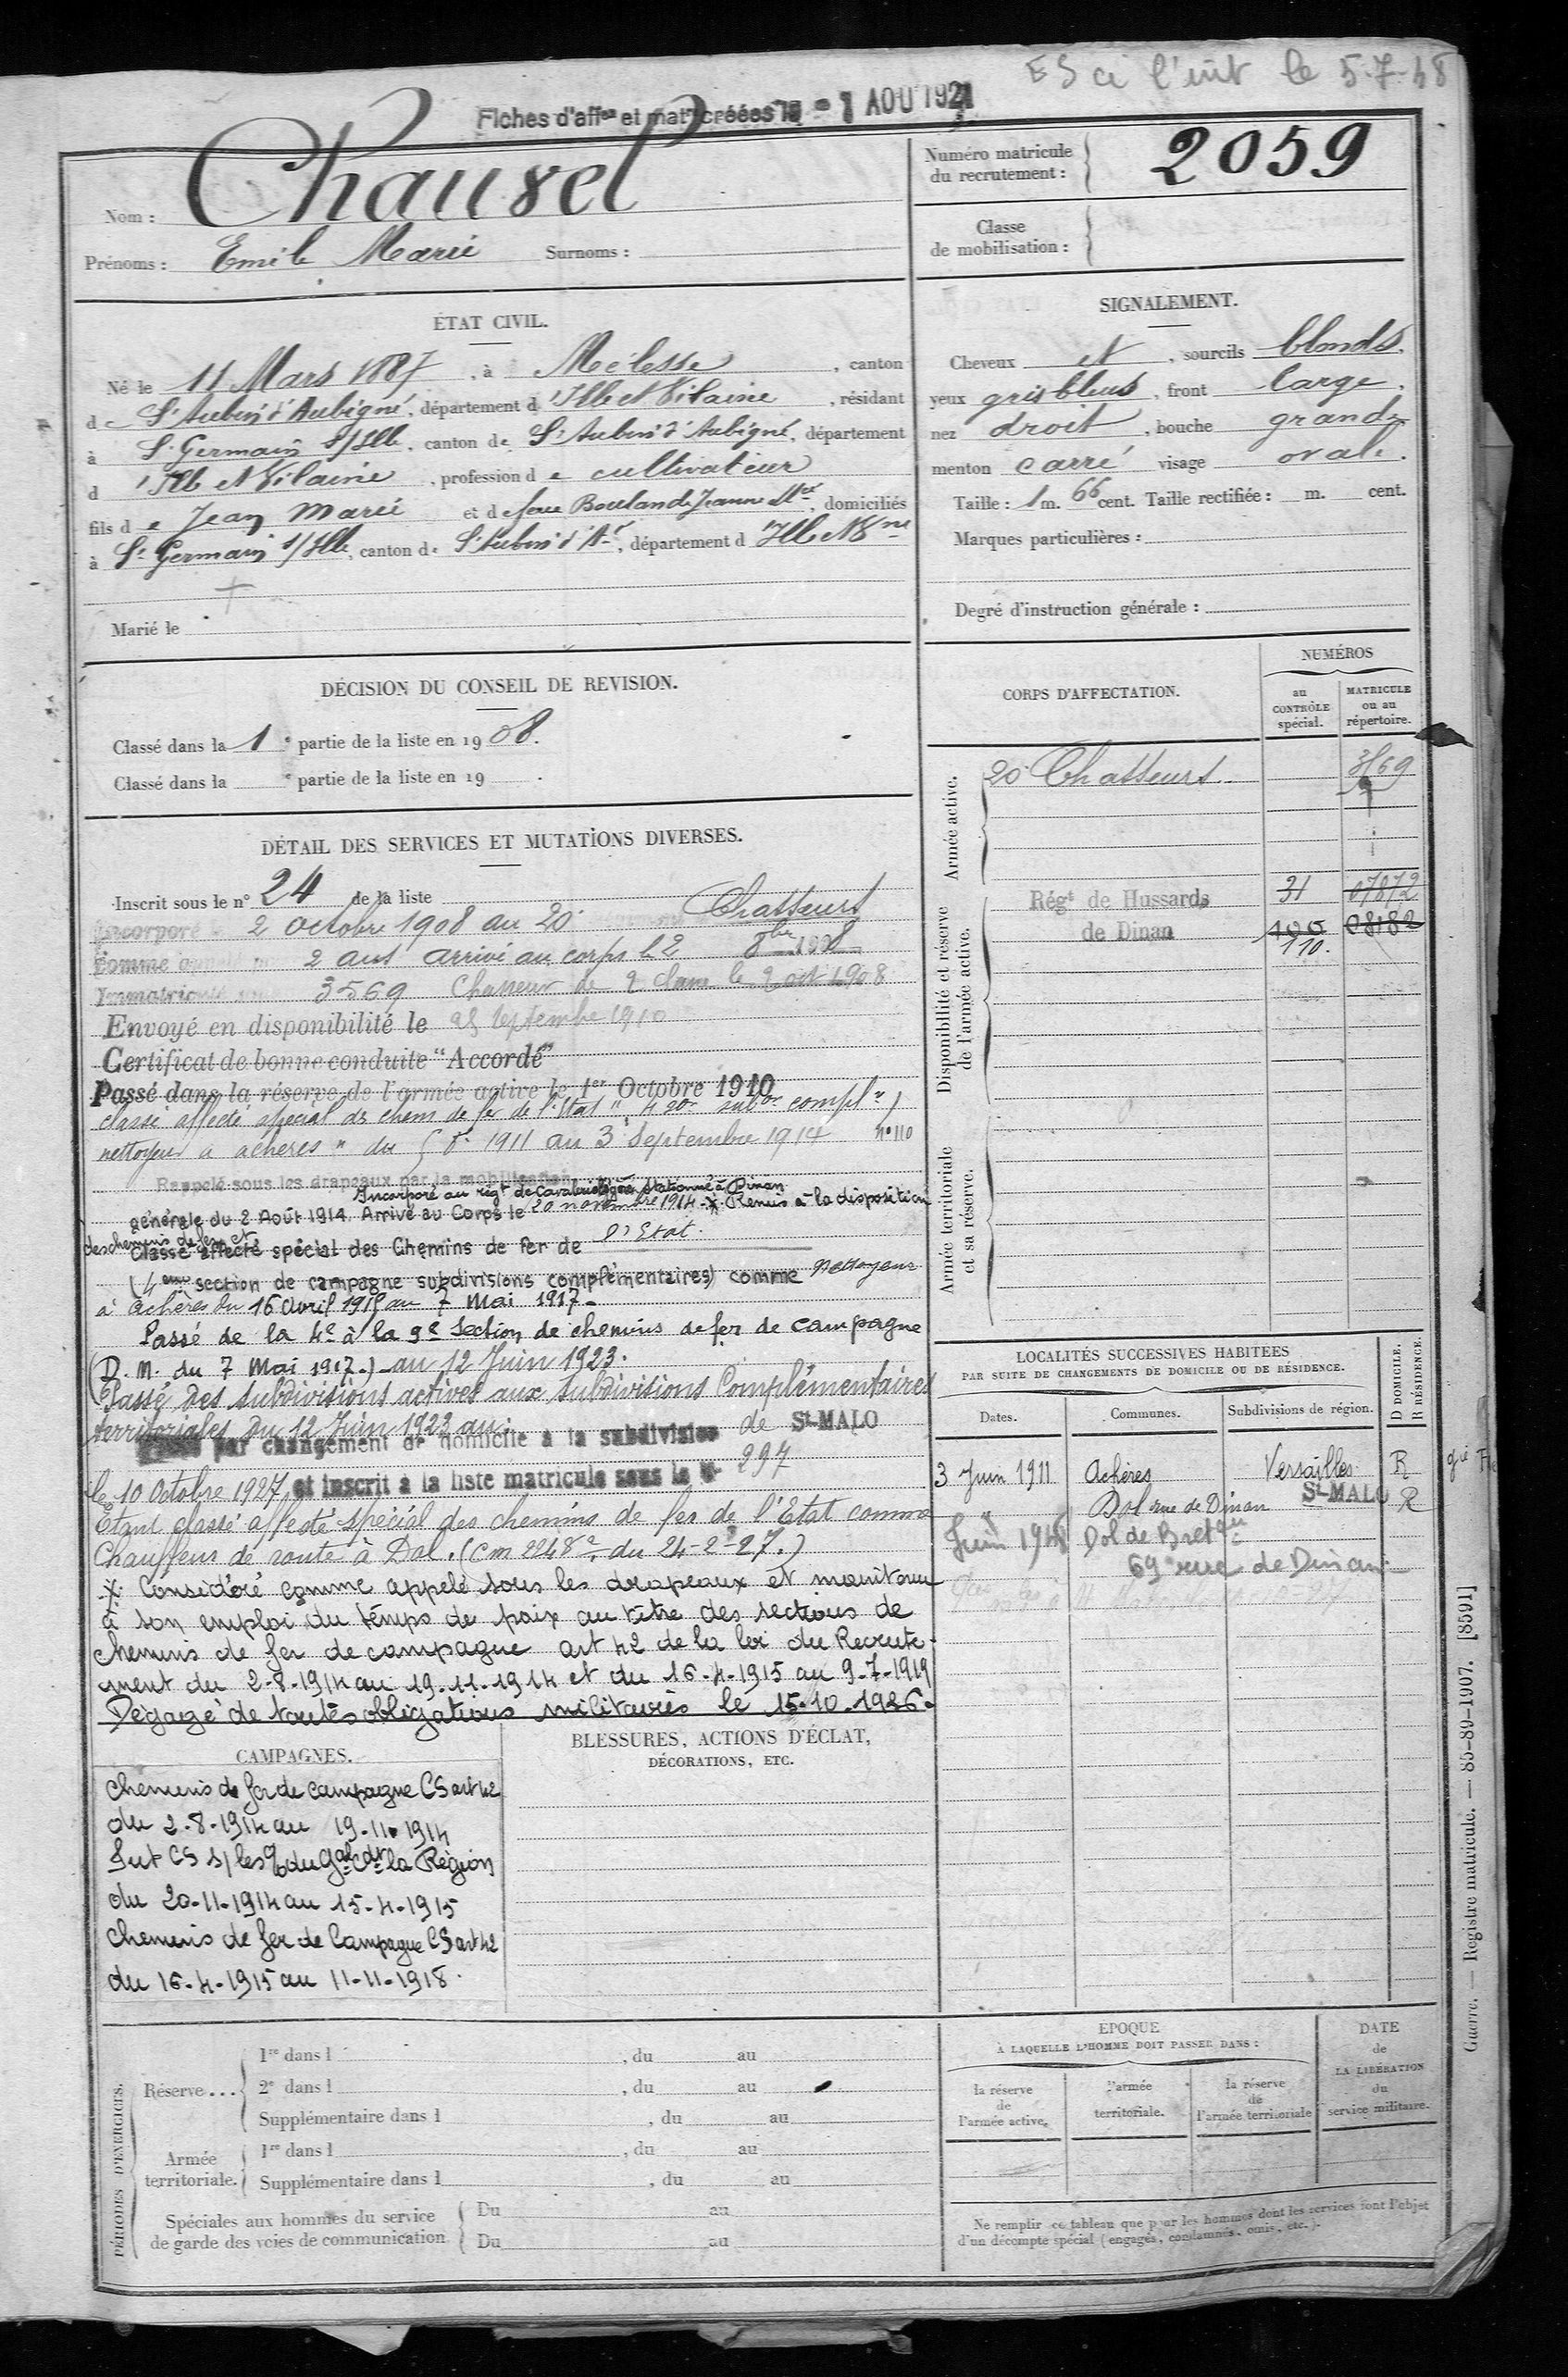 ES ci l'int le 5-7-48
Fiches d'aff on et mat le créées le - 1 AOU 1921
Nom : Chausel
Prénoms : Emile Marie Surnoms :
Numéro matricule
du recrutement : 2059
Classe
de mobilisation :
ÉTAT CIVIL.
Né le 11 Mars 1887, à Melesse, canton
de St Aubin d'Aubigné, département d'Ille et Vilaine, résidant
à St Germain s/Ille, canton de St Aubin d'Aubigné, département
d'Ille et Vilaine, profession de cultivateur
fils de Jean Marie et de feue Jeanne Mie, domiciliés
à St Germain s/Ille, canton de St Aubin d'A né, département d'Ille et Vne
Marié le
SIGNALEMENT.
Cheveux et, sourcils blonds,
yeux gris bleus, front large,
nez droit, bouche grande
menton carré visage ovale.
Taille : 1 m. 66 cent. Taille rectifiée : m. cent.
Marques particulières :
Degré d'instruction générale :
DÉCISION DU CONSEIL DE REVISION.
Classé dans la 1e partie de la liste en 1908.
Classé dans la e partie de la liste en 19 .
DÉTAIL DES SERVICES ET MUTATIONS DIVERSES.
Inscrit sous le n° 24 de la liste
Incorporé 2 octobre 1908 au 20e Chasseurs
comme 2 ans arrivé au corps le 2 8bre 1908
Immatriculé 3569 Chasseur de 2e classe le 2 oct 1908
Envoyé en disponibilité le 25 septembre 1910
Certificat de bonne conduite "Accordé"
Passé dans la réserve de l'armée active le 1er Octobre 1910
classé affecté spécial des chem de fer de l'Etat, 4 son subon complre
nettoyeur à achères " du 1911 au 3 Septembre 1914 n°110
Rappelé sous les drapeaux par la mobilisation
Incorporé au régt de Cavalerie légère stationné à Dinan
générale du 2 Août 1914. Arrivé au Corps le 20 novembre 1914 - X. Remis à la disposition
des chemins de fer et
Classé affecté spécial des Chemins de fer de l'Etat.
(4eme section de campagne subdivisions complémentaires) comme nettoyeur
à Achères du 16 avril 1915 au 7 Mai 1917 -
Passé de la 4e à la 9e Section de chemins de fer de campagne
(D. M. du 7 Mai 1917.) - au 12 Juin 1923.
Passé des subdivisions actives aux subdivisions Complémentaires
territoriales Du 12 Juin 1923 au
Passé par changement de domicile à la subdivision de St-MALO
le 10 Octobre 1927 et inscrit à la liste matricule sous le N° 297
Etant classé affecté spécial des chemins de fer de l'Etat comme
Chauffeur de route à Dol. (Cm 2248 du 24-2-27.)
X. Considéré comme appelé sous les drapeaux et maintenu
à son emploi du temps de paix au titre des sections de
chemins de fer de campagne art 42 de la loi du Recrute-
ment du 2-8-1914 au 19.11.1914 et du 16-4-1915 au 9-7-1919
Dégagé de toutes obligations militaires le 15-10-1936.
CAMPAGNES.
Chemins de fer de campagne CS art 42
du 2-8-1914 au 19-11-1914
Int CS s/ les O du Gal Cdt la Région
du 20-11-1914 au 15-4-1915
Chemins de fer de Campagne CS art 42
du 16-4-1915 au 11-11-1918.
BLESSURES, ACTIONS D'ÉCLAT,
DÉCORATIONS, ETC.
CORPS D'AFFECTATION.
NUMÉROS
au
CONTRÔLE
spécial.
MATRICULE
ou au
répertoire.
Armée active.
20e Chasseurs 3569
Disponibilité et réserve
de l'armée active.
Régt de Hussards 31 07872
de Dinan 08182
110.
Armée territoriale
et sa réserve.
LOCALITÉS SUCCESSIVES HABITÉES
PAR SUITE DE CHANGEMENTS DE DOMICILE OU DE RÉSIDENCE.
Dates. Communes. Subdivisions de région.
D DOMICILE.
R RÉSIDENCE.
3 Juin 1911 Achères Versailles R
Dol rue de Dinan St-MALO R
Juin 1948 Dol de Bretgne
69 rue de Dinan
PÉRIODES D'EXERCICES.
Réserve...
1re dans l , du au
2e dans l , du au
Supplémentaire dans l , du au
Armée
territoriale.
1re dans l , du au
Supplémentaire dans l , du au
Spéciales aux hommes du service
de garde des voies de communication
Du au
Du au
ÉPOQUE
À LAQUELLE L'HOMME DOIT PASSER DANS :
la réserve
de
l'armée active.
l'armée
territoriale.
la réserve
de
l'armée territoriale
DATE
de
LA LIBÉRATION
du
service militaire.
Ne remplir ce tableau que pour les hommes dont les services font l'objet
d'un décompte spécial (engagés, condamnés, omis, etc.).
Guerre. — Registre matricule. — 85-89-1907. [8591]